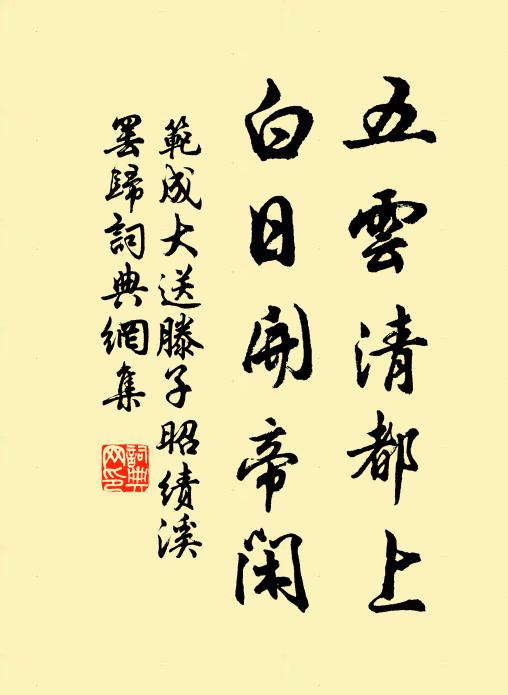 五雲清都上
白日開帝閑
範成大送滕子昭績溪
罢歸詞典網集
詞典
网印